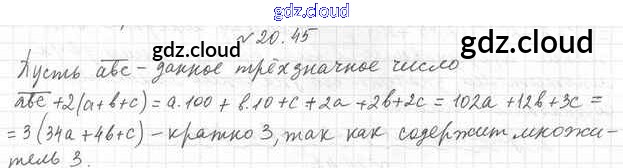 gdz.cloud
№ 20.45
gdz.cloud gdz.cloud
Пусть abc - данное трёхзначное число
abc + 2(a+b+c) = a·100 + b·10 + c + 2a + 2b + 2c = 102a + 12b + 3c =
= 3(34a + 4b + c) - кратно 3, так как содержит множи-
тель 3.
gdz.cloud gdz.cloud